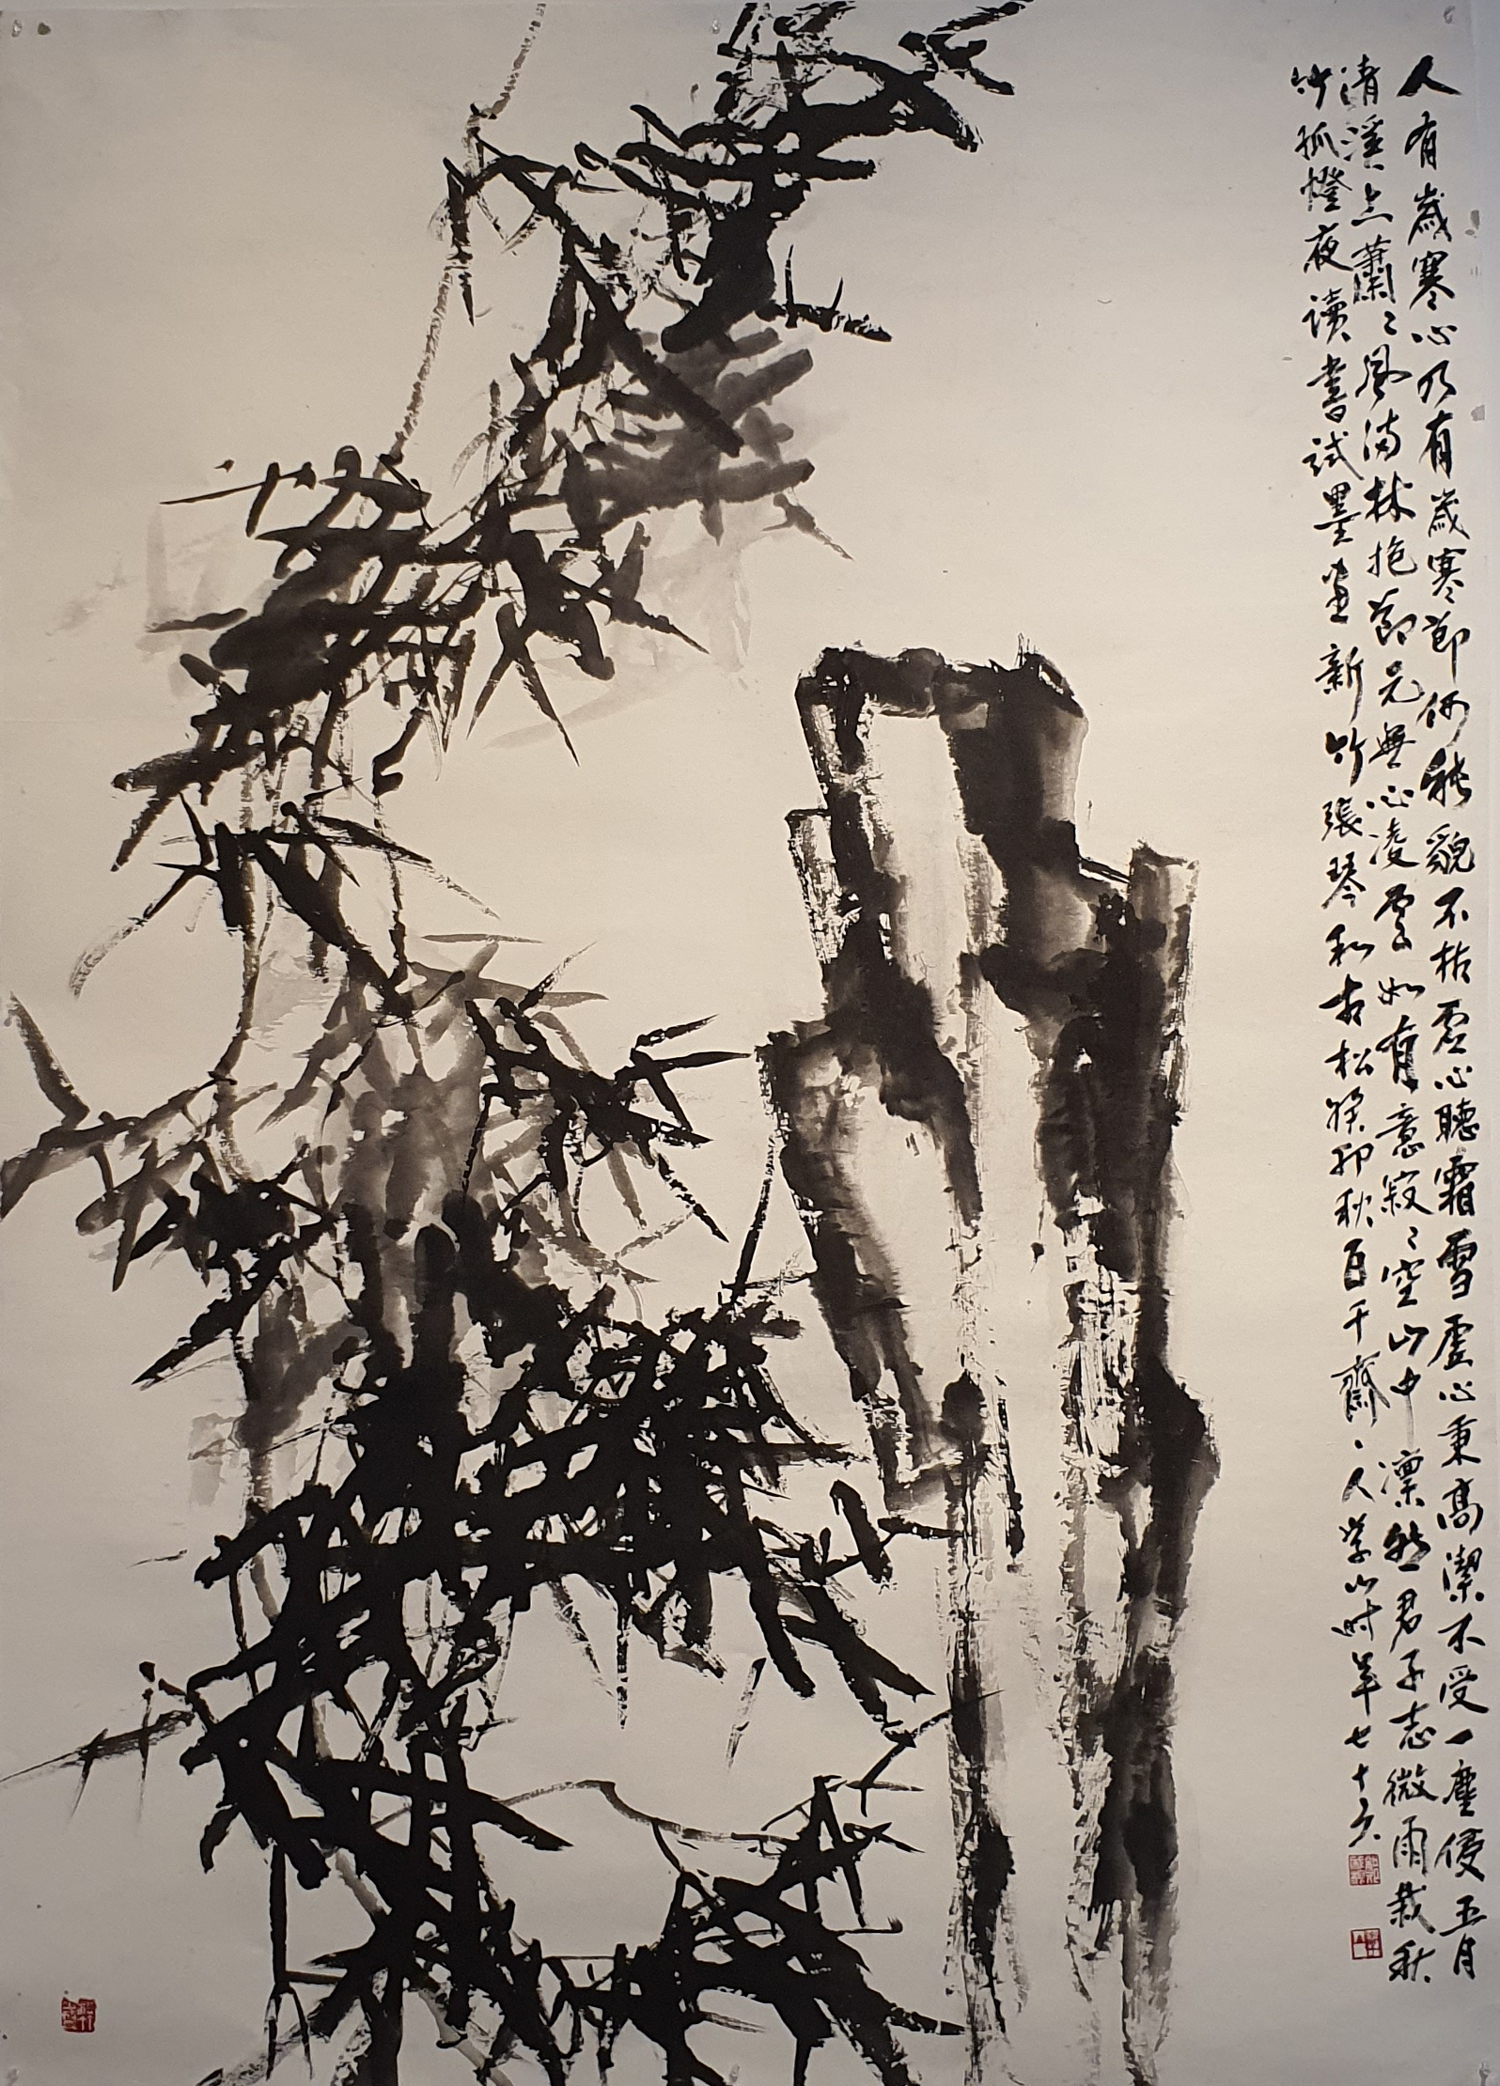 人有歲寒心乃有歲寒節何能貌不枯虛心聽霜雪虛心秉高潔不受一塵侵五月
清溪上蕭〻風滿林抱節元無心凌雲如有意寂〻空山中凛然君子志微雨栽秋
竹孤燈夜讀書試墨畫新竹張琴和古松癸卯秋百千齋、人學山時年七十六